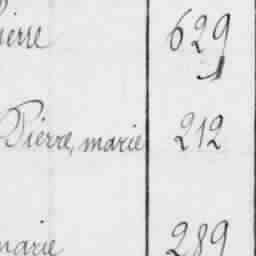 ierre 629
Pierre, marie 212
marie 289